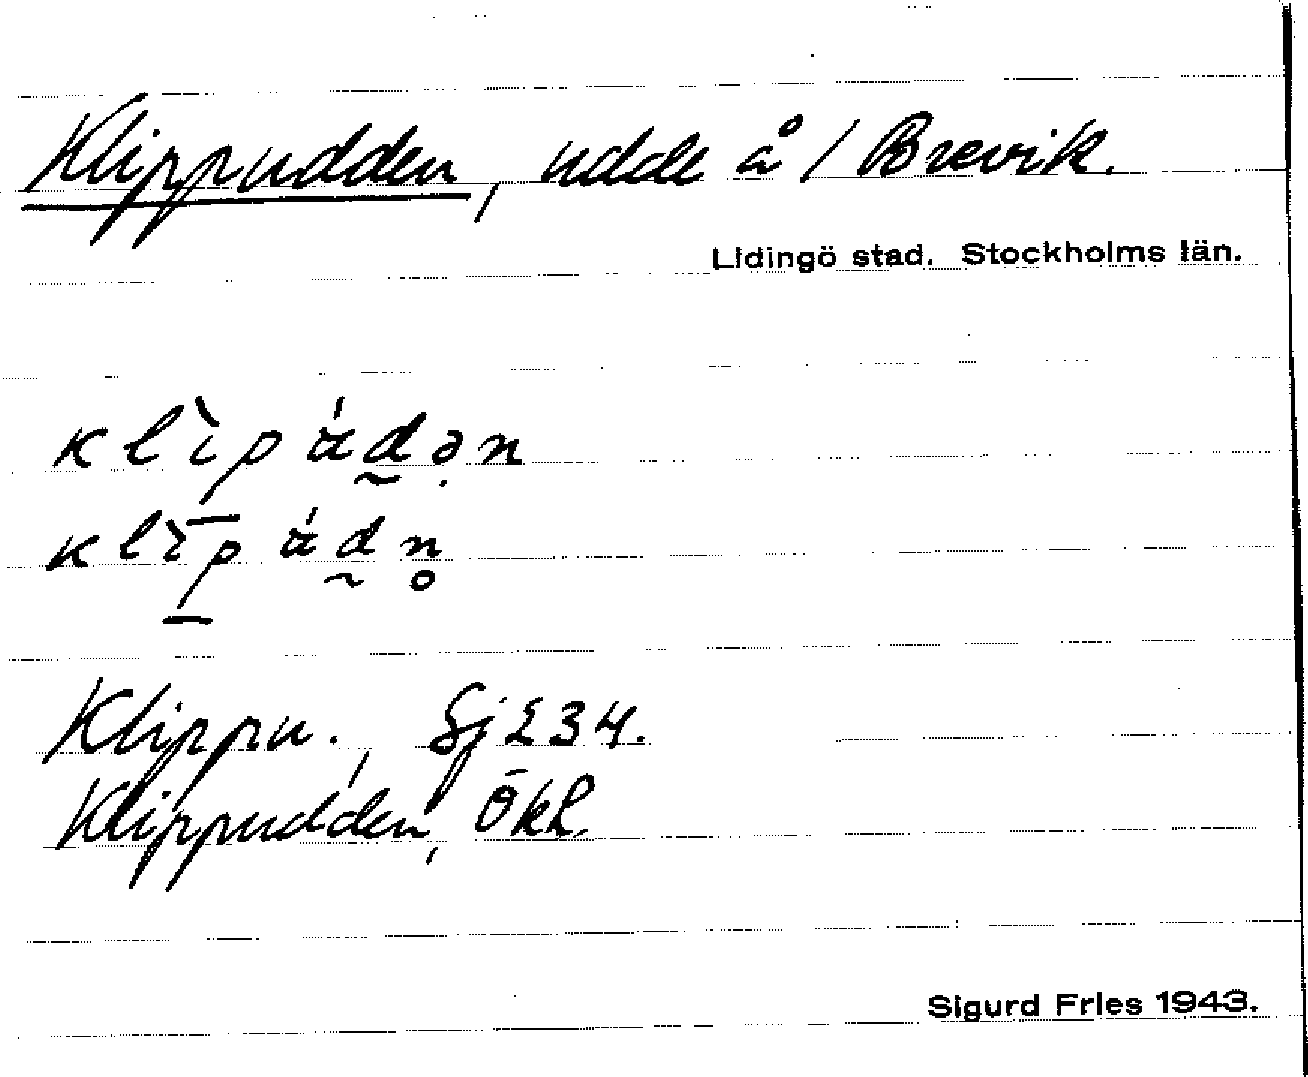 Klippudden, udde å / Brevik.
Lidingö stad. Stockholms län.
Klippu., Sj E34.
Klippudden, Ökl.
Sigurd Fries 1943.